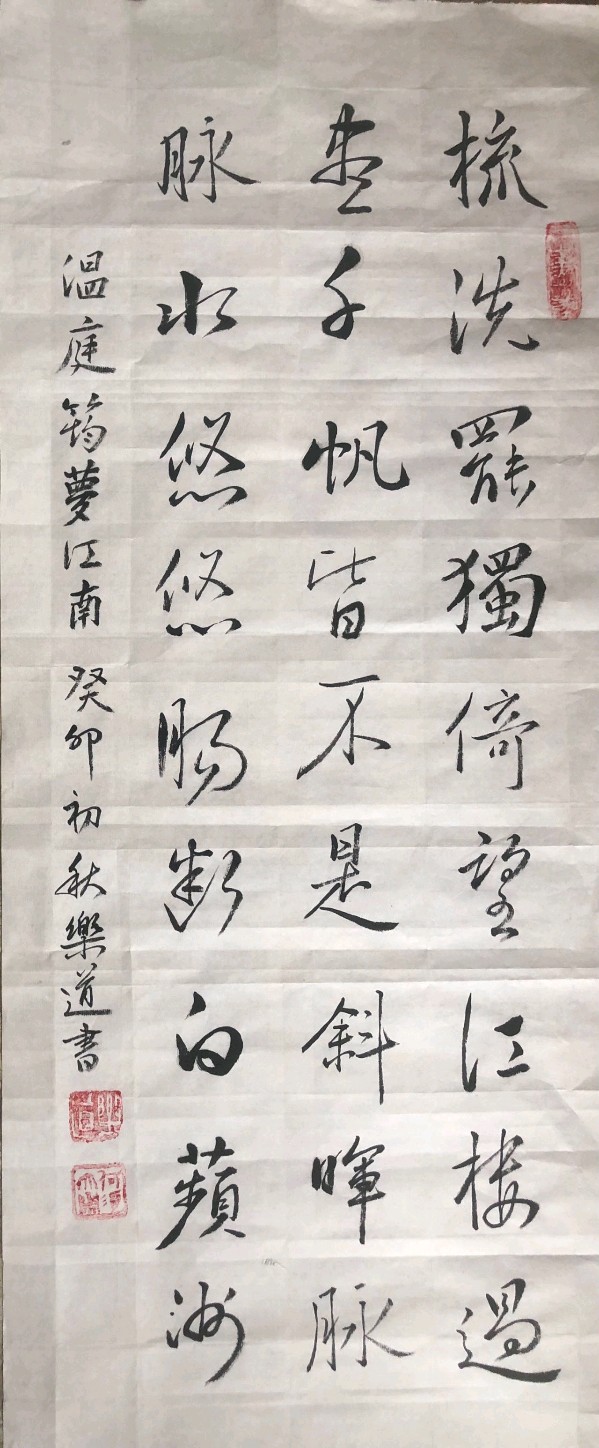 梳洗罷獨倚望江樓過
盡千帆皆不是斜暉脉
脉水悠悠腸斷白蘋洲
温庭筠夢江南 癸卯初秋樂道書